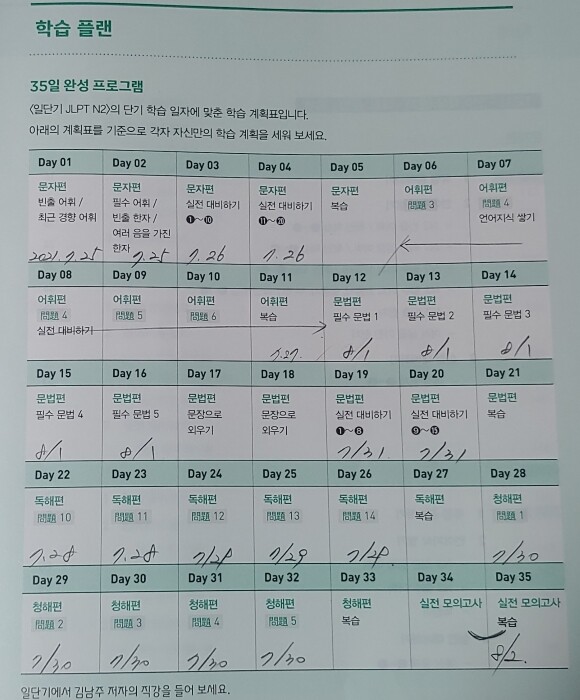 학습 플랜
35일 완성 프로그램
〈일단기 JLPT N2〉의 단기 학습 일자에 맞춘 학습 계획표입니다.
아래의 계획표를 기준으로 각자 자신만의 학습 계획을 세워 보세요.
Day 01
문자편
빈출 어휘 /
최근 경향 어휘
2021.7.25
Day 02
문자편
필수 어휘 /
빈출 한자 /
여러 음을 가진
한자
7.25
Day 03
문자편
실전 대비하기
❶~❿
7.26
Day 04
문자편
실전 대비하기
⓫~⓴
7.26
Day 05
문자편
복습
Day 06
어휘편
問題 3
Day 07
어휘편
問題 4
언어지식 쌓기
Day 08
어휘편
問題 4
실전 대비하기
Day 09
어휘편
問題 5
Day 10
어휘편
問題 6
Day 11
어휘편
복습
7.27.
Day 12
문법편
필수 문법 1
8/1
Day 13
문법편
필수 문법 2
8/1
Day 14
문법편
필수 문법 3
8/1
Day 15
문법편
필수 문법 4
8/1
Day 16
문법편
필수 문법 5
8/1
Day 17
문법편
문장으로
외우기
Day 18
문법편
문장으로
외우기
Day 19
문법편
실전 대비하기
❶~❽
7/31
Day 20
문법편
실전 대비하기
❾~⓯
7/31
Day 21
문법편
복습
Day 22
독해편
問題 10
7.28
Day 23
독해편
問題 11
7.28
Day 24
독해편
問題 12
7/29
Day 25
독해편
問題 13
7/29
Day 26
독해편
問題 14
7/29.
Day 27
독해편
복습
Day 28
청해편
問題 1
7/30
Day 29
청해편
問題 2
7/30
Day 30
청해편
問題 3
7/30
Day 31
청해편
問題 4
7/30
Day 32
청해편
問題 5
7/30
Day 33
청해편
복습
Day 34
실전 모의고사
Day 35
실전 모의고사
복습
8/2.
일단기에서 김남주 저자의 직강을 들어 보세요.